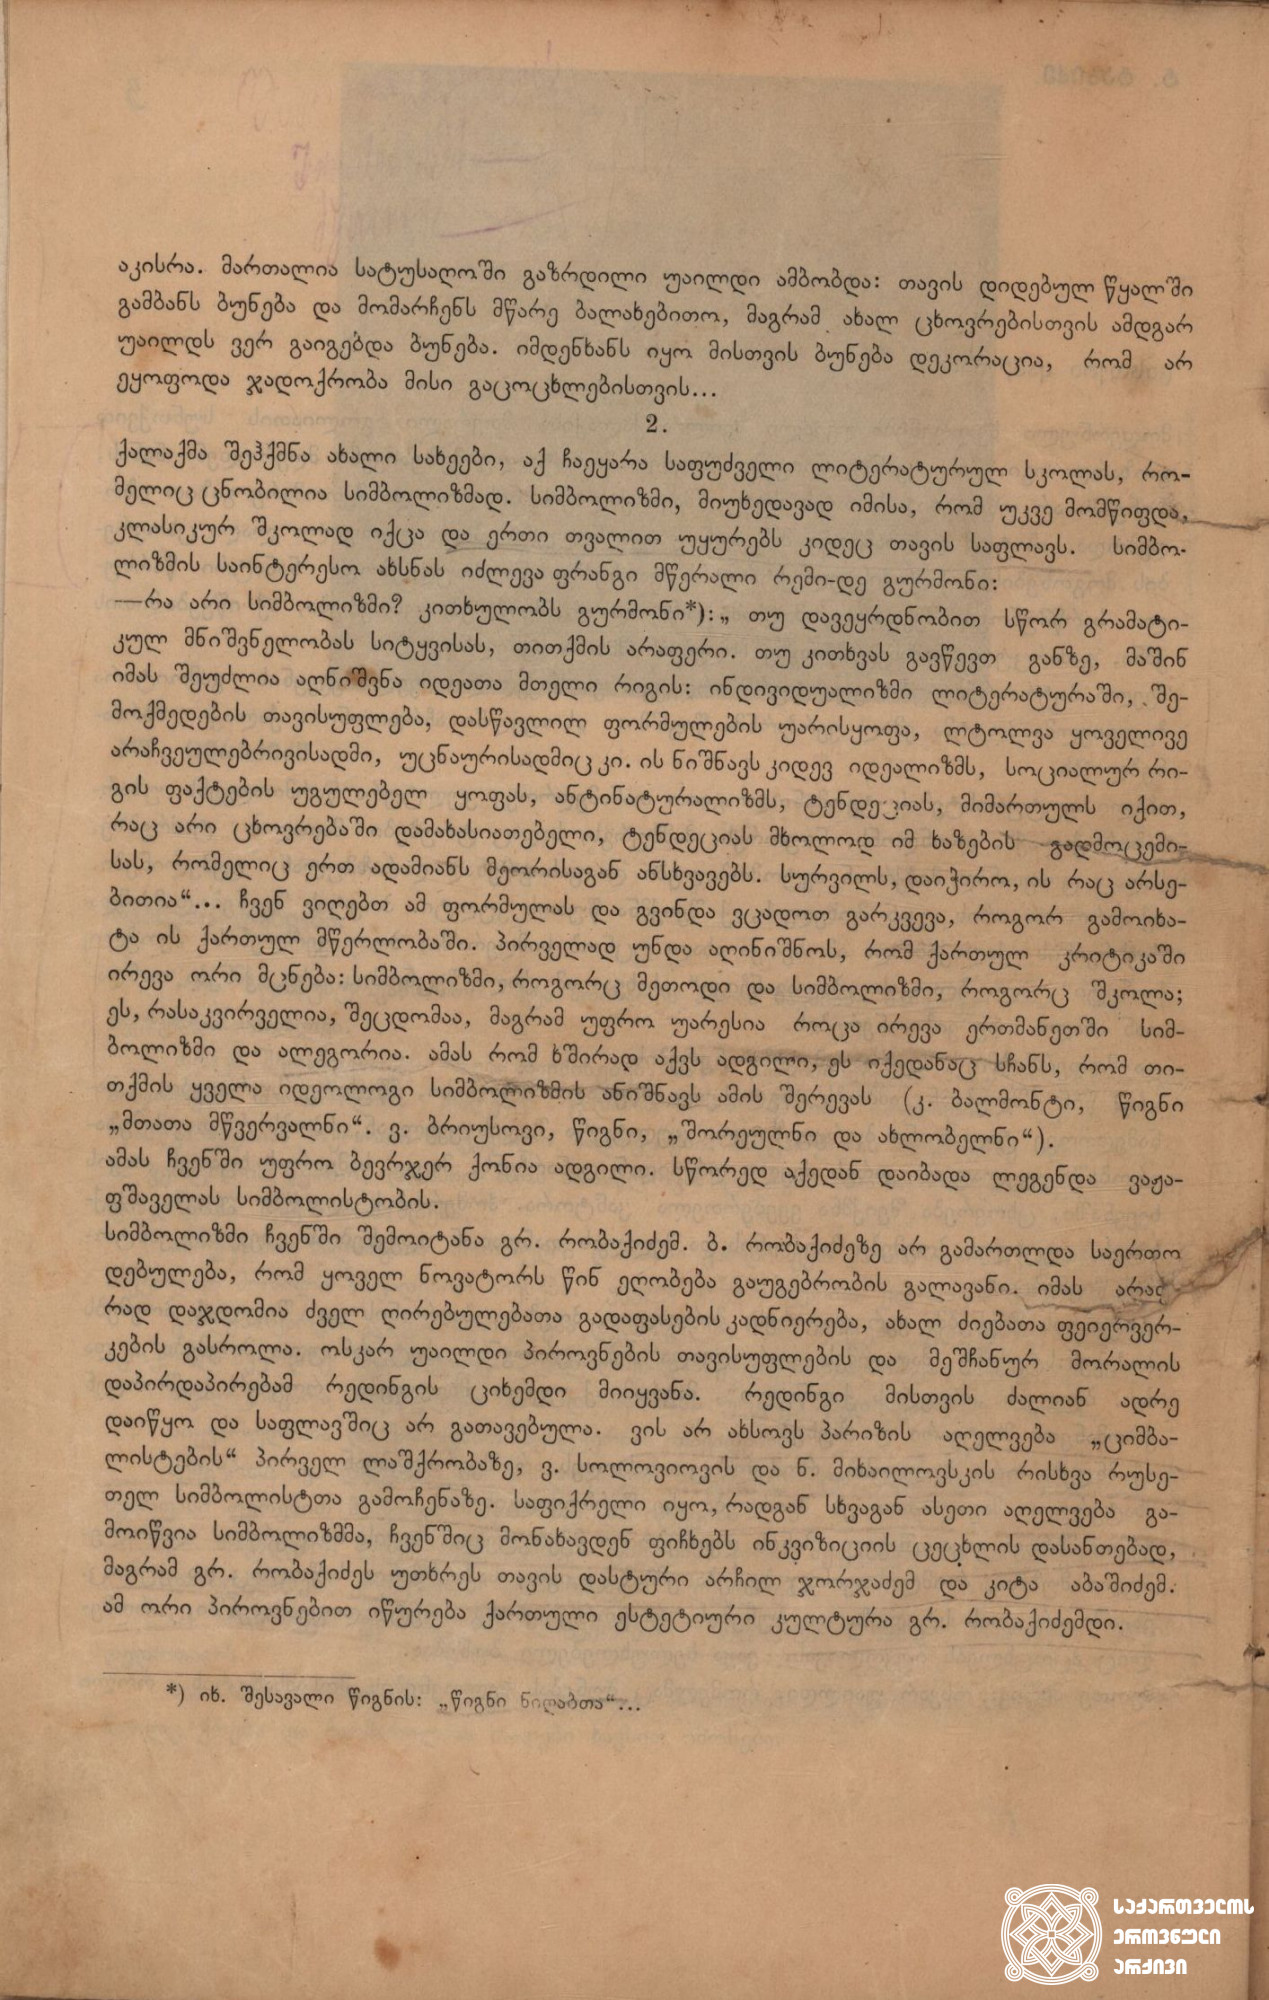 აკისრა. მართალია სატუსაღოში გაზრდილი უაილდი ამბობდა: თავის დიდებულ წყალში
გამბანს ბუნება და მომარჩენს მწარე ბალახებითო, მაგრამ ახალ ცხოვრებისთვის ამდგარ
უაილდს ვერ გაიგებდა ბუნება. იმდენხანს იყო მისთვის ბუნება დეკორაცია, რომ არ
ეყოფოდა ჯადოქრობა მისი გაცოცხლებისთვის...
2.
ქალაქმა შეჰქმნა ახალი სახეები, აქ ჩაეყარა საფუძველი ლიტერატურულ სკოლას, რო-
მელიც ცნობილია სიმბოლიზმად. სიმბოლიზმი, მიუხედავად იმისა, რომ უკვე მომწიფდა,
კლასიკურ შკოლად იქცა და ერთი თვალით უყურებს კიდეც თავის საფლავს. სიმბო-
ლიზმის საინტერესო ახსნას იძლევა ფრანგი მწერალი რემი-დე გურმონი:
—რა არი სიმბოლიზმი? კითხულობს გურმონი*):„ თუ დავეყრდნობით სწორ გრამატი-
კულ მნიშვნელობას სიტყვისას, თითქმის არაფერი. თუ კითხვას გავწევთ განზე, მაშინ
იმას შეუძლია აღნიშვნა იდეათა მთელი რიგის: ინდივიდუალიზმი ლიტერატურაში, შე-
მოქმედების თავისუფლება, დასწავლილ ფორმულების უარისყოფა, ლტოლვა ყოველივე
არაჩვეულებრივისადმი, უცნაურისადმიც კი. ის ნიშნავს კიდევ იდეალიზმს, სოციალურ რი-
გის ფაქტების უგულებელ ყოფას, ანტინატურალიზმს, ტენდეციას, მიმართულს იქით,
რაც არი ცხოვრებაში დამახასიათებელი, ტენდეციას მხოლოდ იმ ხაზების გადმოცემი-
სას, რომელიც ერთ ადამიანს მეორისაგან ანსხვავებს. სურვილს, დაიჭირო, ის რაც არსე-
ბითია“... ჩვენ ვიღებთ ამ ფორმულას და გვინდა ვცადოთ გარკვევა, როგორ გამოიხა-
ტა ის ქართულ მწერლობაში. პირველად უნდა აღინიშნოს, რომ ქართულ კრიტიკაში
ირევა ორი მცნება: სიმბოლიზმი, როგორც მეთოდი და სიმბოლიზმი, როგორც შკოლა;
ეს, რასაკვირველია, შეცდომაა, მაგრამ უფრო უარესია როცა ირევა ერთმანეთში სიმ-
ბოლიზმი და ალეგორია. ამას რომ ხშირად აქვს ადგილი, ეს იქედანაც სჩანს, რომ თი-
თქმის ყველა იდეოლოგი სიმბოლიზმის ანიშნავს ამის შერევას (კ. ბალმონტი, წიგნი
„მთათა მწვერვალნი“. ვ. ბრიუსოვი, წიგნი, „შორეულნი და ახლობელნი“).
ამას ჩვენში უფრო ბევრჯერ ქონია ადგილი. სწორედ აქედან დაიბადა ლეგენდა ვაჟა-
ფშაველას სიმბოლისტობის.
სიმბოლიზმი ჩვენში შემოიტანა გრ. რობაქიძემ. ბ. რობაქიძეზე არ გამართლდა საერთო
დებულება, რომ ყოველ ნოვატორს წინ ეღობება გაუგებრობის გალავანი. იმას
რად დაჯდომია ძველ ღირებულებათა გადაფასების კადნიერება, ახალ ძიებათა ფეიერვერ-
კების გასროლა. ოსკარ უაილდი პიროვნების თავისუფლების და მეშჩანურ მორალის
დაპირდაპირებამ რედინგის ციხემდი მიიყვანა. რედინგი მისთვის ძალიან ადრე
დაიწყო და საფლავშიც არ გათავებულა. ვის არ ახსოვს პარიზის აღელვება „ციმბა-
ლისტების“ პირველ ლაშქრობაზე, ვ. სოლოვიოვის და ნ. მიხაილოვსკის რისხვა რუსე-
თელ სიმბოლისტთა გამოჩენაზე. საფიქრელი იყო, რადგან სხვაგან ასეთი აღელვება გა-
მოიწვია სიმბოლიზმმა, ჩვენშიც მონახავდენ ფიჩხებს ინკვიზიციის ცეცხლის დასანთებად,
მაგრამ გრ. რობაქიძეს უთხრეს თავის დასტური არჩილ ჯორჯაძემ და კიტა აბაშიძემ.
ამ ორი პიროვნებით იწურება ქართული ესტეტიური კულტურა გრ. რობაქიძემდი.
*) იხ. შესავალი წიგნის: „წიგნი ნიღაბთა“...
საქართველოს
ეროვნული
არქივი